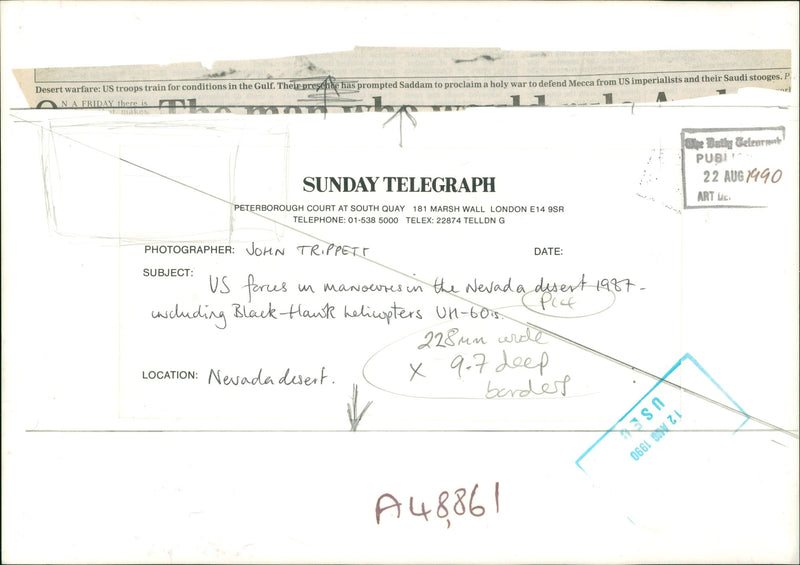 Desert warfare: US troops train for conditions in the Gulf. Their presence has prompted Saddam to proclaim a holy war to defend Mecca from US imperialists and their Saudi stooges. P
ON A FRIDAY there is
makes
The man who would rule
The Daily Telegraph
PUBL
22 AUG 1990
ART DE.
SUNDAY TELEGRAPH
PETERBOROUGH COURT AT SOUTH QUAY 181 MARSH WALL LONDON E14 9SR
TELEPHONE: 01-538 5000 TELEX: 22874 TELLDN G
PHOTOGRAPHER: JOHN TRIPPETT DATE:
SUBJECT: US forces in manouvres in the Nevada desert 1987 -
including Black-Hawk helicopters UH-60s.
Pic
228mm wide
x 9.7 deep
borders
LOCATION: Nevada desert.
USED
12 AUG 1990
A48,861